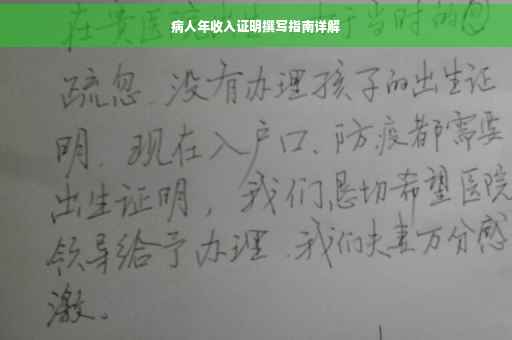 病人年收入证明撰写指南详解
在贵医院出生,由于当时的
疏忽.没有办理孩子的出生证
明.现在入户口、防疫都需要
出生证明,我们恳切希望医院
领导给予办理.我们夫妻万分感
激。